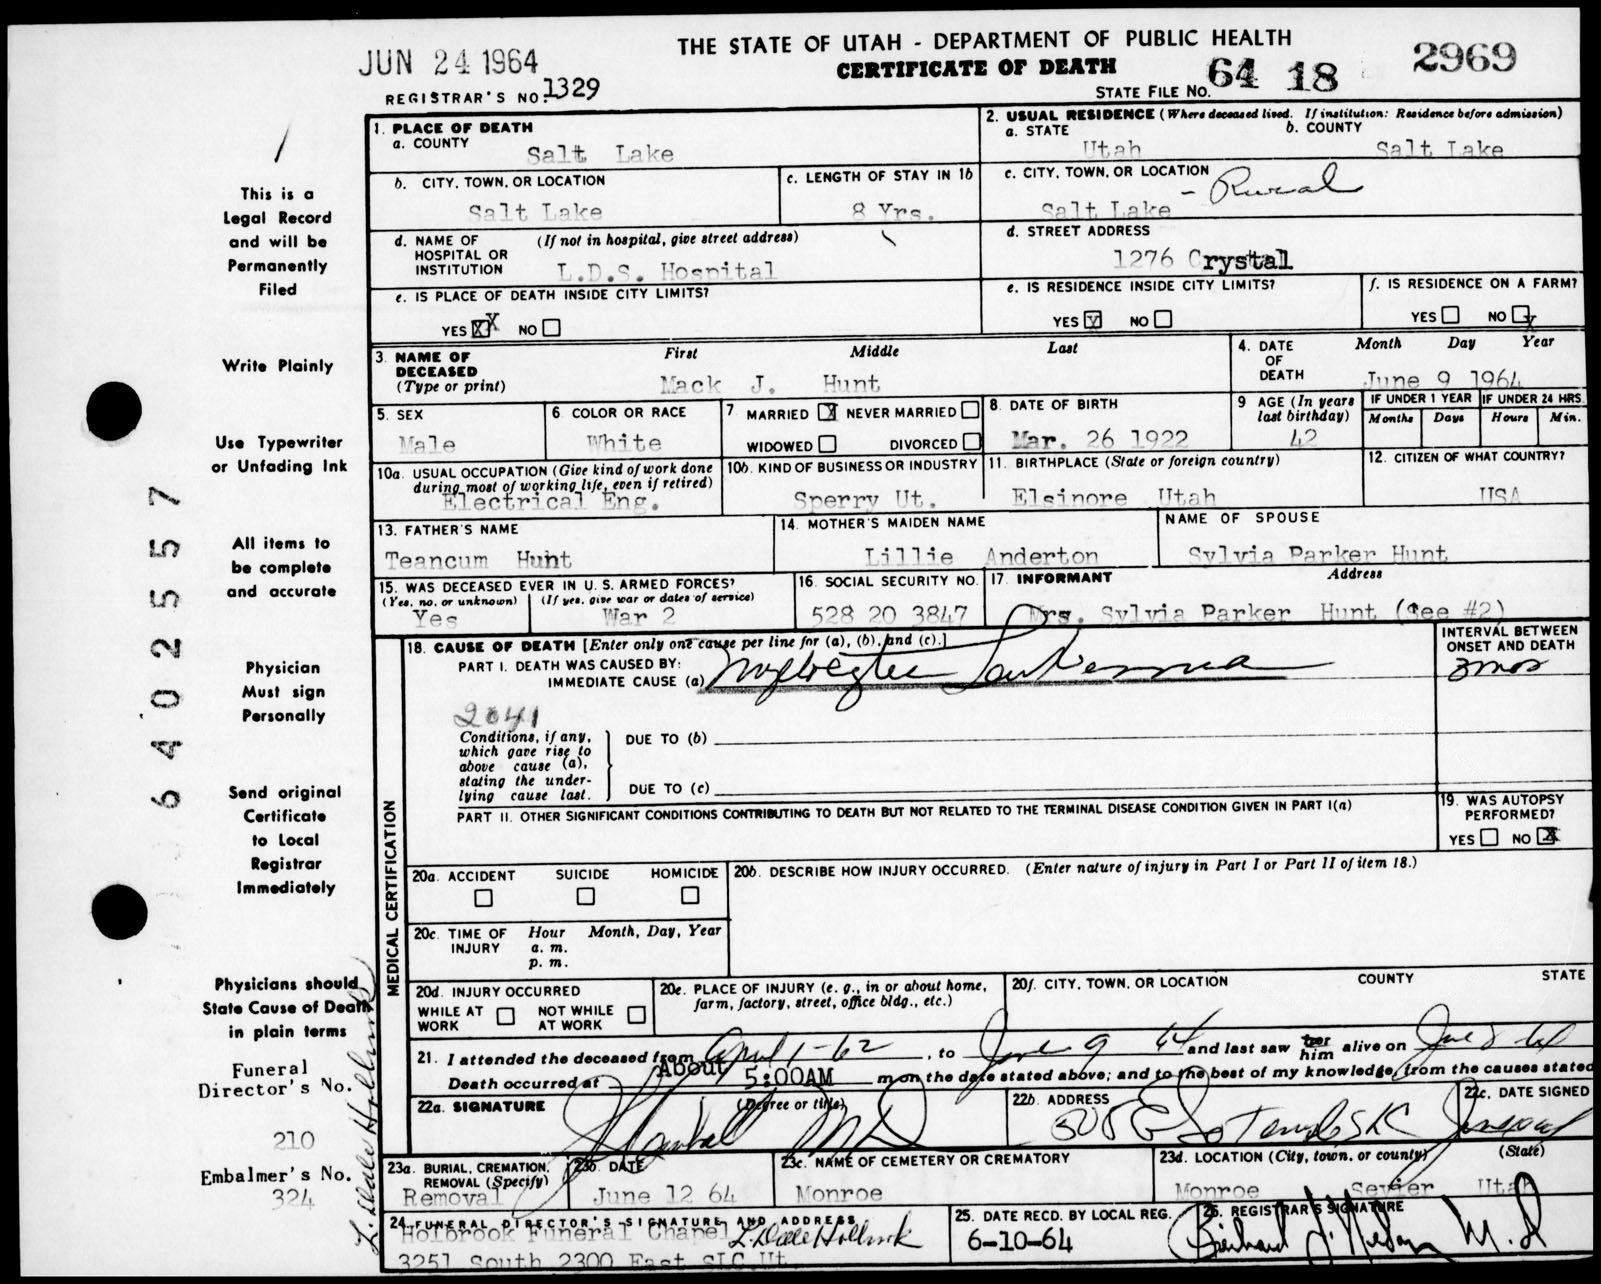 THE STATE OF UTAH - DEPARTMENT OF PUBLIC HEALTH
CERTIFICATE OF DEATH
JUN 24 1964
REGISTRAR'S NO. 1329
STATE FILE NO. 64 18 2969
This is a
Legal Record
and will be
Permanently
Filed
Write Plainly
Use Typewriter
or Unfading Ink
All items to
be complete
and accurate
Physician
Must sign
Personally
Send original
Certificate
to Local
Registrar
Immediately
Physicians should
State Cause of Death
in plain terms
Funeral
Director's No.
210
Embalmer's No.
324
L. Dale Holbrook
64025557
1. PLACE OF DEATH
a. COUNTY
Salt Lake
2. USUAL RESIDENCE (Where deceased lived. If institution: Residence before admission)
a. STATE b. COUNTY
Utah Salt Lake
b. CITY, TOWN, OR LOCATION
Salt Lake
c. LENGTH OF STAY IN 1b
8 Yrs.
c. CITY, TOWN, OR LOCATION
Salt Lake - Rural
d. NAME OF HOSPITAL OR INSTITUTION (If not in hospital, give street address)
L.D.S. Hospital
d. STREET ADDRESS
1276 Crystal
e. IS PLACE OF DEATH INSIDE CITY LIMITS?
YES X X NO
e. IS RESIDENCE INSIDE CITY LIMITS?
YES X NO
f. IS RESIDENCE ON A FARM?
YES NO X
3. NAME OF DECEASED (Type or print)
First Middle Last
Mack J. Hunt
4. DATE OF DEATH
Month Day Year
June 9 1964
5. SEX
Male
6. COLOR OR RACE
White
7. MARRIED X NEVER MARRIED
WIDOWED DIVORCED
8. DATE OF BIRTH
Mar. 26 1922
9 AGE (In years last birthday)
42
IF UNDER 1 YEAR
Months Days
IF UNDER 24 HRS.
Hours Min.
10a. USUAL OCCUPATION (Give kind of work done during most of working life, even if retired)
Electrical Eng.
10b. KIND OF BUSINESS OR INDUSTRY
Sperry Ut.
11. BIRTHPLACE (State or foreign country)
Elsinore Utah
12. CITIZEN OF WHAT COUNTRY?
USA
13. FATHER'S NAME
Teancum Hunt
14. MOTHER'S MAIDEN NAME
Lillie Anderton
NAME OF SPOUSE
Sylvia Parker Hunt
15. WAS DECEASED EVER IN U. S. ARMED FORCES?
(Yes, no, or unknown) (If yes, give war or dates of service)
Yes War 2
16. SOCIAL SECURITY NO.
528 20 3847
17. INFORMANT Address
Mrs. Sylvia Parker Hunt (See #2)
MEDICAL CERTIFICATION
18. CAUSE OF DEATH [Enter only one cause per line for (a), (b), and (c).]
PART I. DEATH WAS CAUSED BY:
IMMEDIATE CAUSE (a)
INTERVAL BETWEEN ONSET AND DEATH
3 mos
2041
Conditions, if any, which gave rise to above cause (a), stating the underlying cause last.
DUE TO (b)
DUE TO (c)
PART II. OTHER SIGNIFICANT CONDITIONS CONTRIBUTING TO DEATH BUT NOT RELATED TO THE TERMINAL DISEASE CONDITION GIVEN IN PART I(a)
19. WAS AUTOPSY PERFORMED?
YES NO X
20a. ACCIDENT SUICIDE HOMICIDE
20b. DESCRIBE HOW INJURY OCCURRED. (Enter nature of injury in Part I or Part II of item 18.)
20c. TIME OF INJURY Hour Month, Day, Year
a. m.
p. m.
20d. INJURY OCCURRED
WHILE AT WORK NOT WHILE AT WORK
20e. PLACE OF INJURY (e. g., in or about home, farm, factory, street, office bldg., etc.)
20f. CITY, TOWN, OR LOCATION COUNTY STATE
21. I attended the deceased from April 1-62, to June 9 64 and last saw her him alive on
Death occurred at About 5:00AM m on the date stated above; and to the best of my knowledge, from the causes stated
22a. SIGNATURE (Degree or title)
MD
22b. ADDRESS
22c. DATE SIGNED
23a. BURIAL, CREMATION, REMOVAL (Specify)
Removal
23b. DATE
June 12 64
23c. NAME OF CEMETERY OR CREMATORY
Monroe
23d. LOCATION (City, town, or county) (State)
Monroe Sevier Utah
24. FUNERAL DIRECTOR'S SIGNATURE AND ADDRESS
Holbrook Funeral Chapel L. Dale Holbrook
3251 South 2300 East SLC.Ut.
25. DATE RECD. BY LOCAL REG.
6-10-64
26. REGISTRAR'S SIGNATURE
M.D